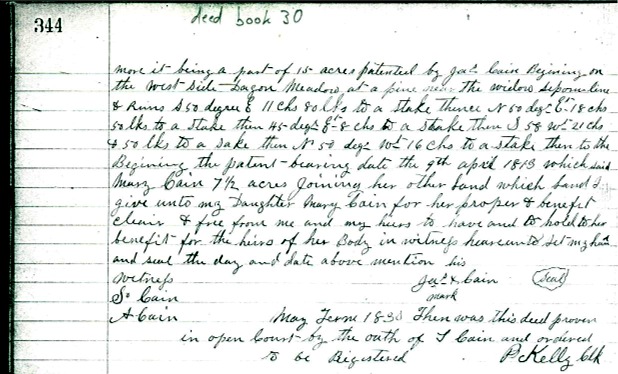 deed book 30
344
more it being a part of 15 acres patented by Jas Cain Begining on
the West side Meadow at a pine near the widow line
& Runs S 50 degree E 11 chs 80 lks to a stake thence N 50 degs Et 18 chs
50 lks to a stake then 45 degs Et 8 chs to a stake then S 58 Wt 21 chs
& 50 lks to a sake then No 50 degs Wt 16 chs to a stake then to the
Begining the patent bearing date the 9th april 1813 which said
Mary Cain 7 1/2 acres Joining her other land which land I
give unto my Daughter Mary Cain for her proper & benefit
clear & free from me and my heirs to have and to hold to her
benefit for the heirs of her Body in witness heareunto set my
and seal the day and date above mention his
Witness Jas x Cain Seal
So Cain mark
A Cain May Term 1830 Then was this deed proven
in open Court by the oath of S Cain and ordered
to be Registered P Kelly Clk